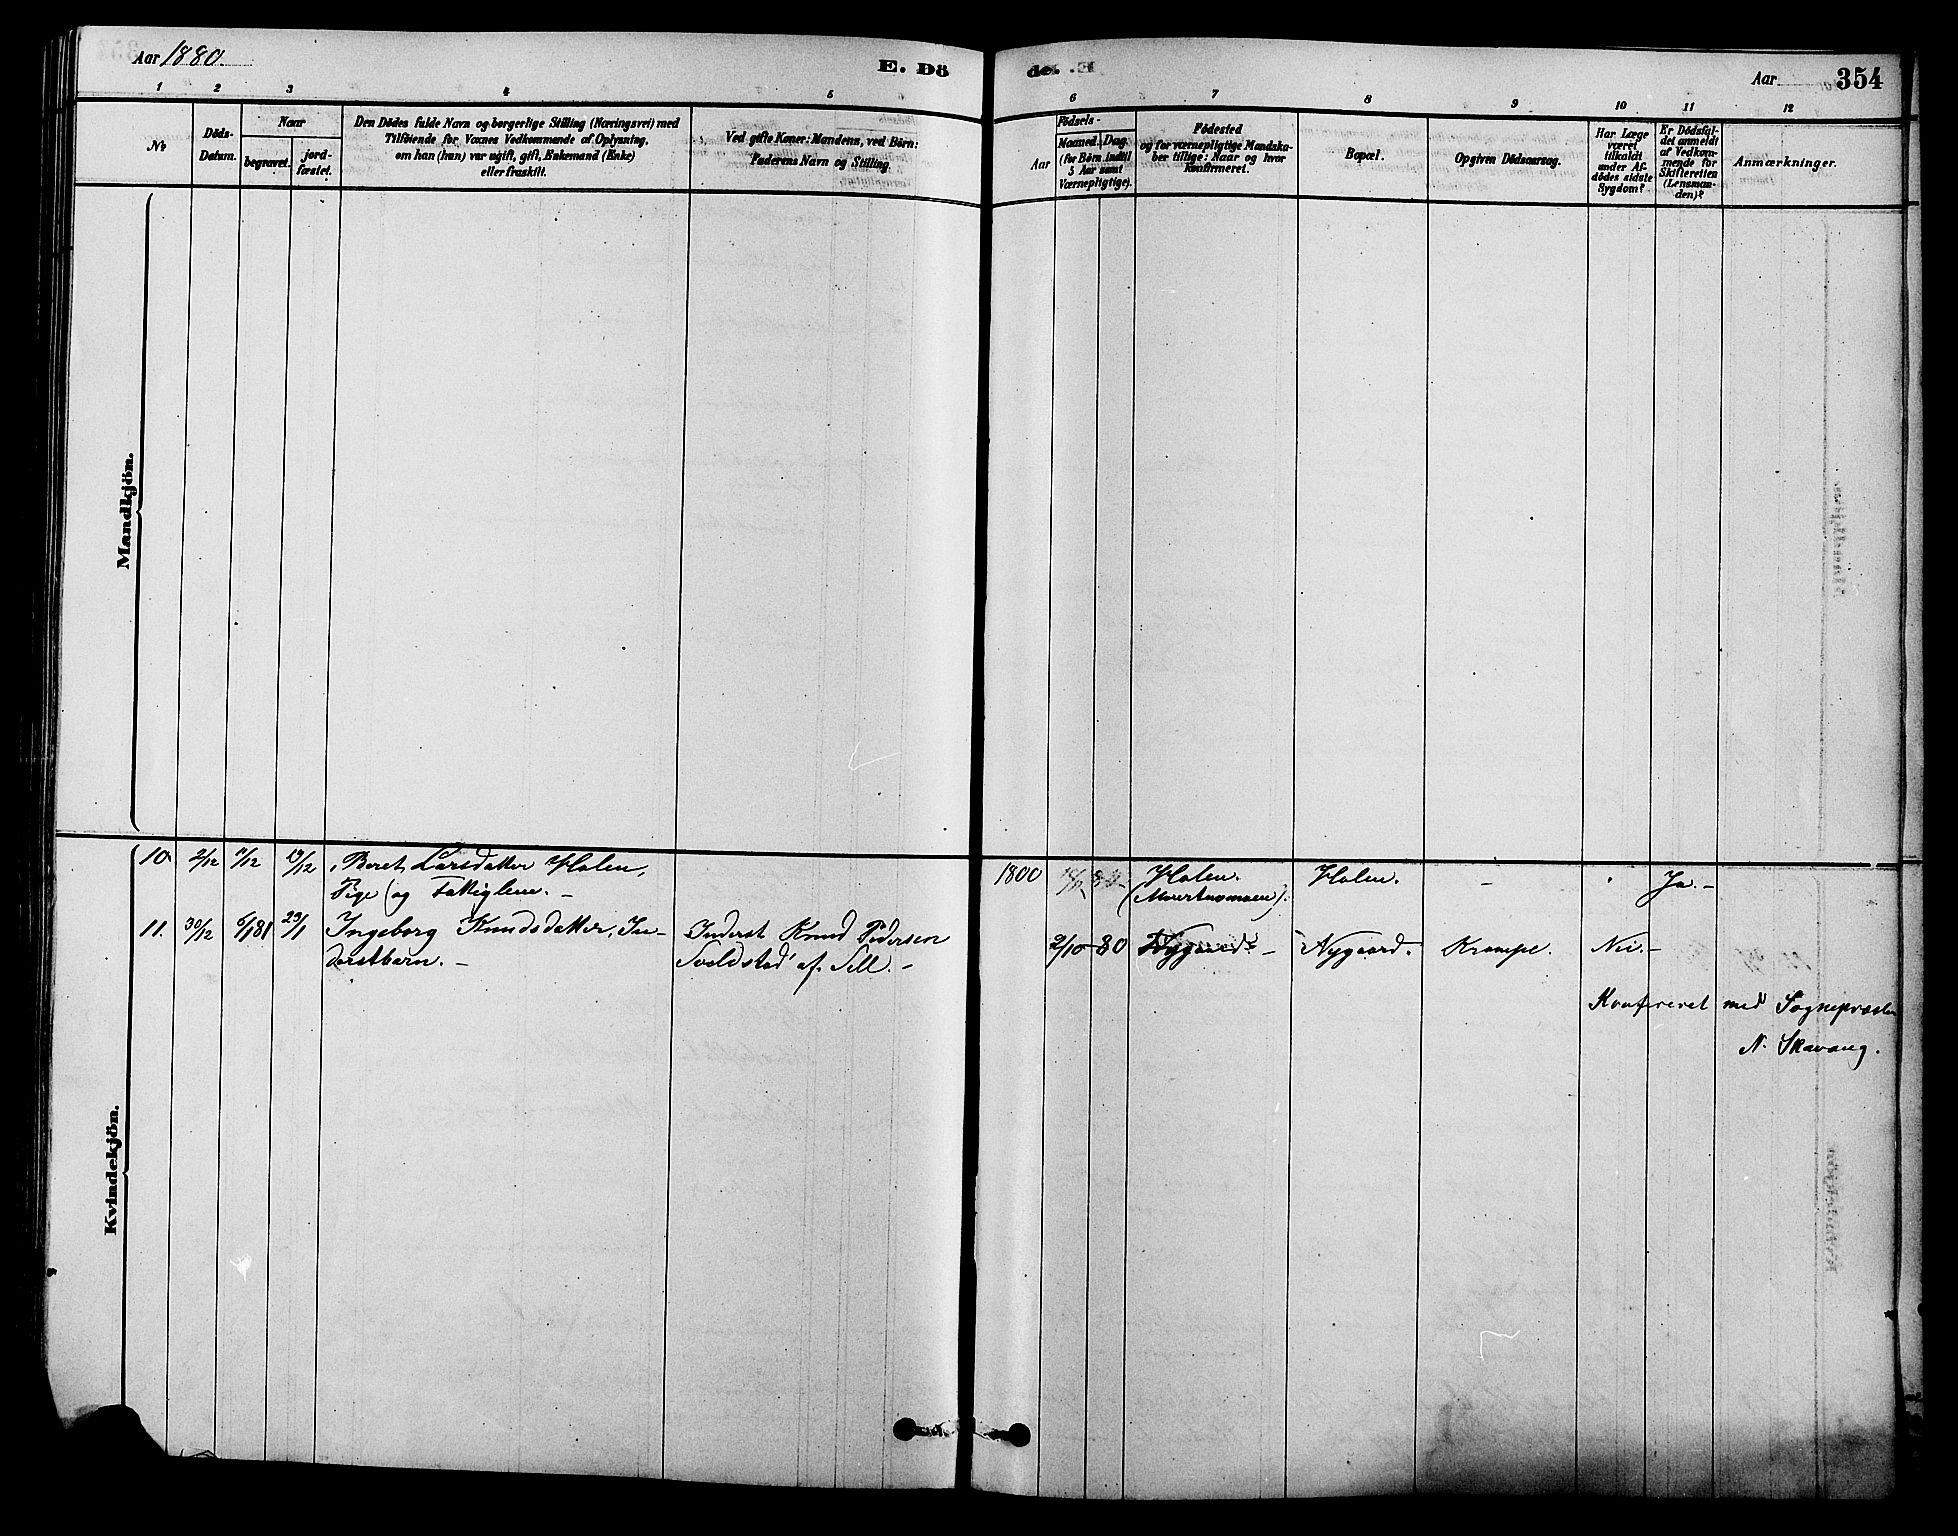 Aar 1880.
E. Dö
de.
Aar
354
1 2 3 4 5 6 7 8 9 10 11 12
No
Döds-
Datum.
Naar
begravet.
jord-
fæstet.
Den Dödes fulde Navn og borgerlige Stilling (Næringsvei) med
Tilföiende for Voxnes Vedkommende af Oplysning,
om han (hun) var ugift, gift, Enkemand (Enke)
eller fraskilt.
Ved gifte Koner: Mandens, ved Börn:
Faderens Navn og Stilling.
Födsels-
Aar
Maaned. Dag.
(for Börn indtil
5 Aar samt
Værnepligtige).
Födested
og for værnepligtige Mandska-
ber tillige: Naar og hvor
Konfirmeret.
Bopæl.
Opgiven Dödsaarsag.
Har Læge
været
tilkaldt
under Af-
dödes sidste
Sygdom?
Er Dödsfal-
det anmeldt
af Vedkom-
mende for
Skifteretten
(Lensman-
den)?
Anmærkninger.
Mandkjön.
Kvindekjön.
10. 2/12 7/12 19/12 Beret Larsdatter Holen, 1800 Holen. Holen. - Ja.-
Pige og Fattiglem. -
11. 30/12 6/1 81 23/1 Ingeborg Knudsdatter, In- Inderst Knud Pedersen 2/10 - 80 Nygaard - Nygaard. Krampe. Nei. -
derstbarn. - af Sell. -
Konfereret med Sognepresten
N. Skavang.